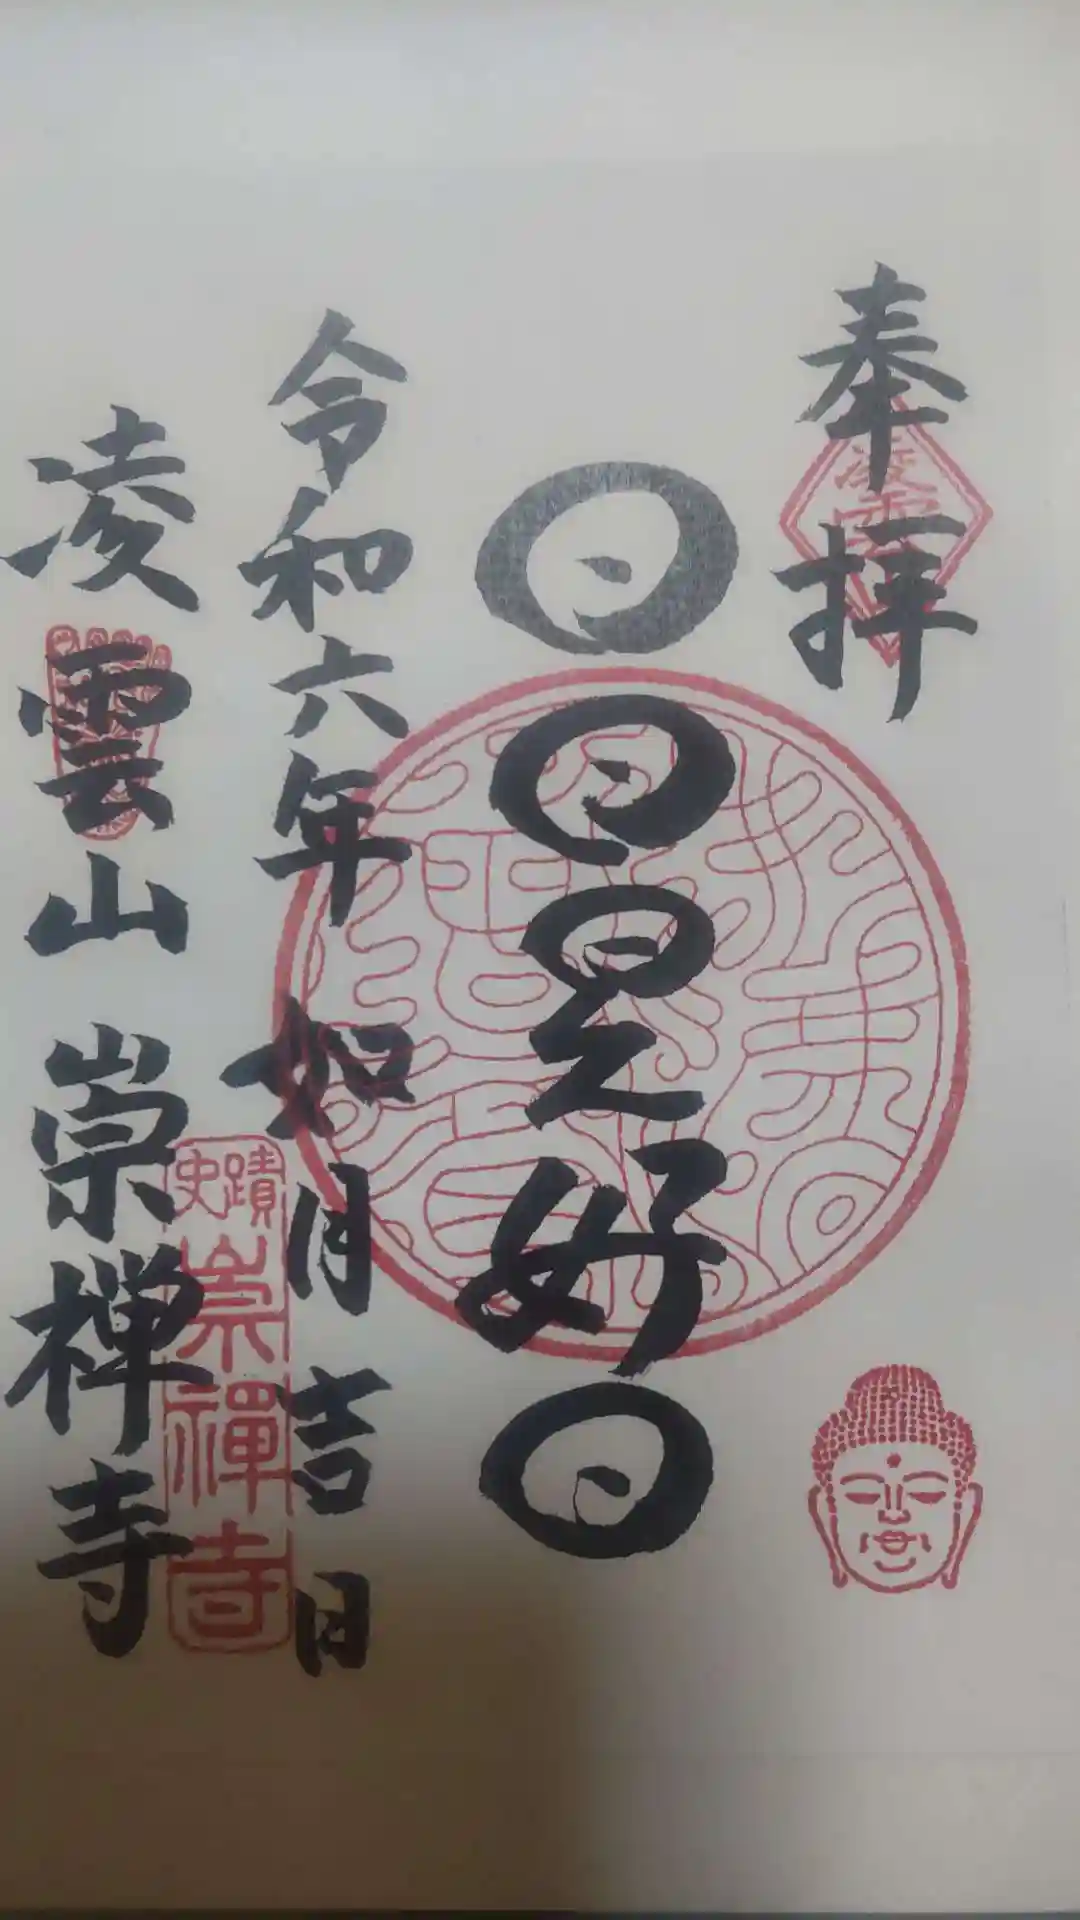 奉拝
凌雲
日日是好日
令和六年如月吉日
凌雲山 崇禅寺
史蹟
崇禪寺